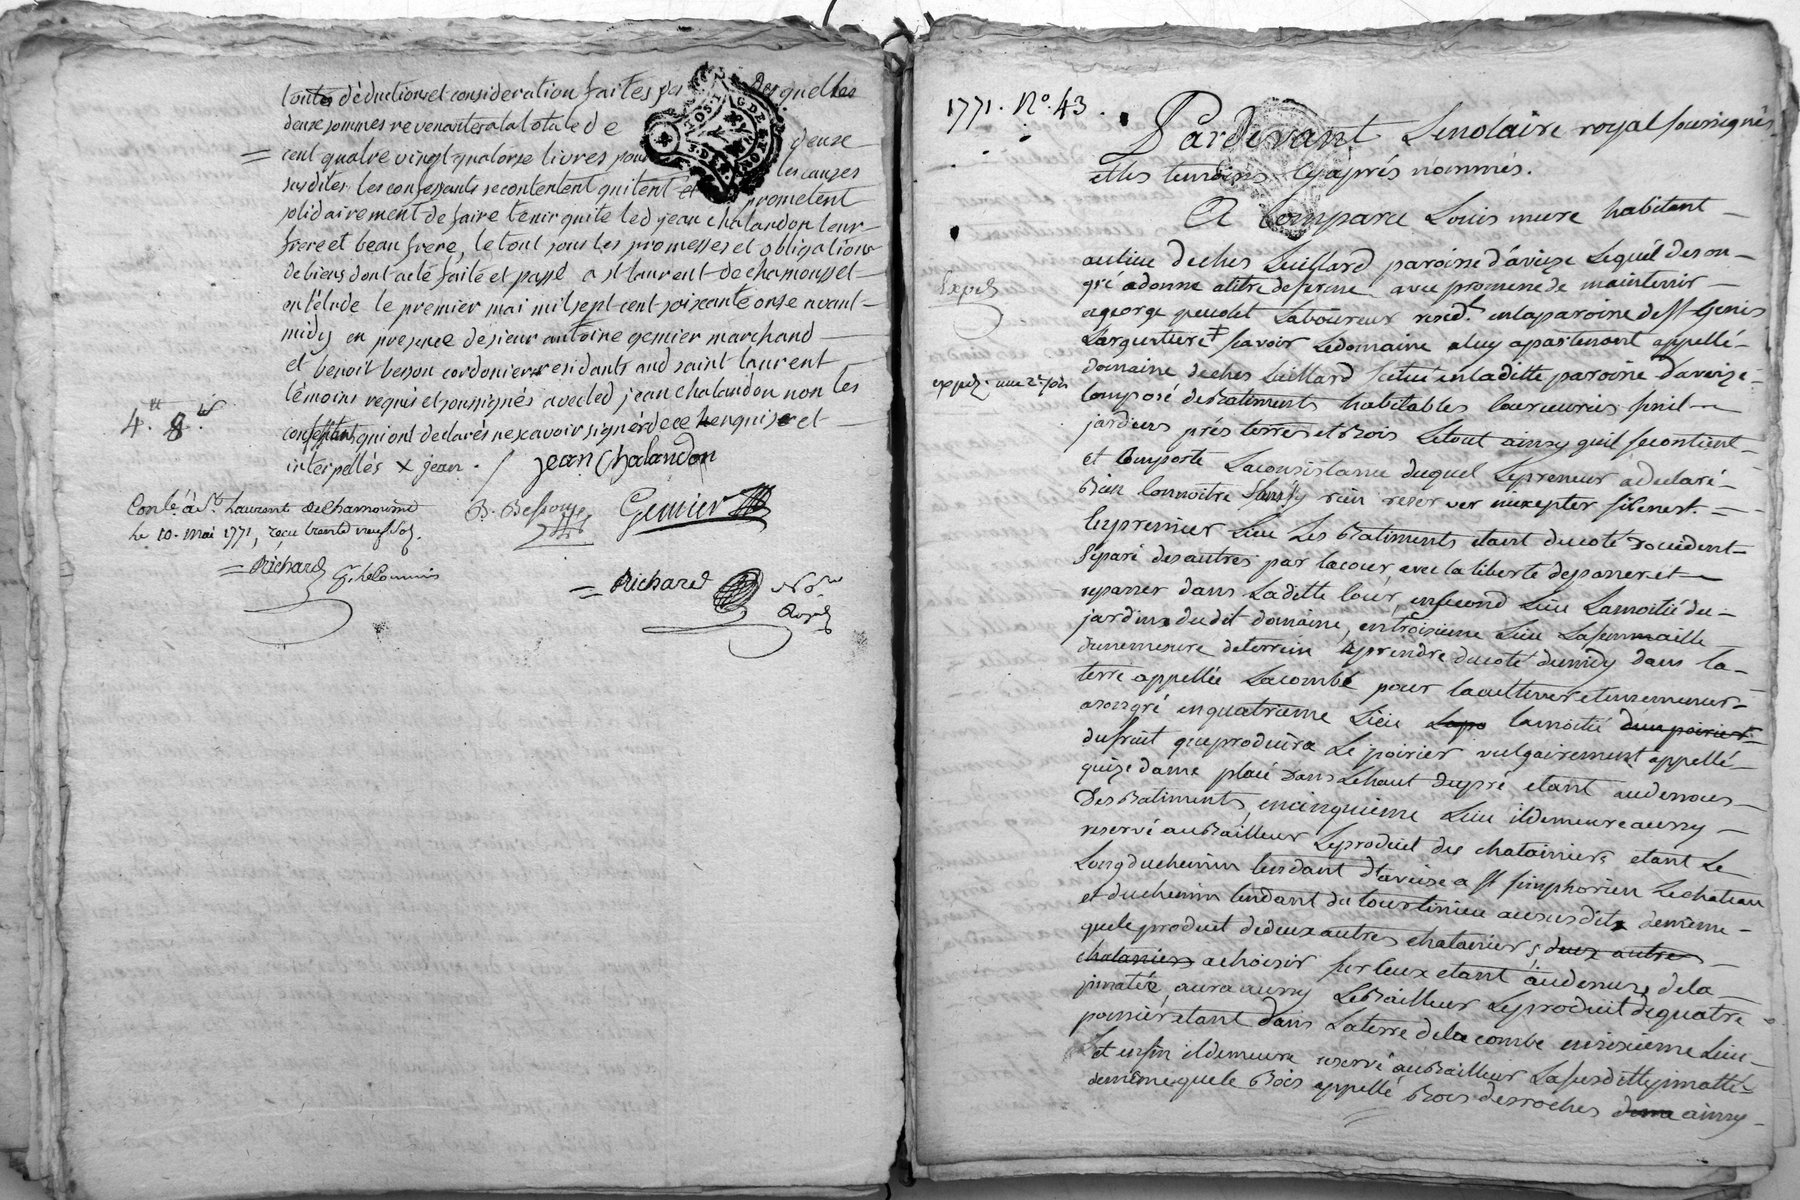 toutes déductions et consideration faites desquelles
deux sommes revenantes a la totale de
cent quatre vingt quatorse livres pour les causes
susdites les confessants se contentent quitent et prometent
solidairement de faire tenir quite led jean chalandon leur
frere et beau frere, le tout sous les promesses et obligations
de biens dont acte faite et passé a st laurent de chamousset
en l'étude le premier mai mil sept cent soixante onse avant
midy en presence de sieur antoine gemier marchand
et benoit besson cordonier residants aud saint laurent
témoins requis et soussignés avec led jean chalandon non les
confessants qui ont declarés ne scavoir signer de ce enquis et
interpellés x jean ./ jean chalandon
4.tt 8.s
Conlé à St Laurent de Chamousset
Le 10. mai 1771, reçu trente neuf sols.
Richard
B. Besson
Gemier
Richard
Nore
Royal
1771. No. 43.
Pardevant Le notaire royal soussignés
et les temoins cy après nommés.
A Comparu Louis mure habitant
au lieu de chez Luillard paroisse d'aveize Lequel de son
gré a donné a titre de ferme avec promesse de maintenir
a george Laboureur resid.t en la paroisse de st Genis
Largentiere ≠ scavoir Le domaine a luy apartenant appellé
domaine de chez Luillard situé en la ditte paroisse d'aveize
Composé de Batiments habitables
jardins prés terres et Bois Le tout ainsy quil se contient
et Comporte La consistance duquel Le preneur a declaré
Bien Connoitre sans y rien reserver n'y excepter si ce n'est
En premier Lieu Les Batiments etant du coté d'occident
Separé des autres par la cour avec la liberte de passer et
repasser dans La ditte Cour, en second Lieu La moitié du
jardin du dit domaine, en troisieme Lieu La semmaille
d'une mesure de terrein a prendre du coté du midy dans la
terre appellée La combe pour la cultiver et ensemencer
a son gré en quatrieme Lieu la moitié d'un poirier
du fruit que produira Le poirier vulgairement appellé
placé dans Le haut du pré etant au dessous
Des Batiments, en cinquieme Lieu il demeure aussy
reservé au Bailleur Le produit des chataniers etant Le
Long du chemin tendant d'aveize a st simphorien Le chateau
et du chemin tendant du au susdit de meme
que le produit de deux autres chataniers, deux autres
chataniers a choisir sur Ceux etant au dessus de la
aura aussy Le Bailleur Le produit de quatre
etant dans La terre de la combe en sixieme Lieu
Et enfin il demeure reservé au Bailleur La susditte
de meme que le Bois appellé Bois des roches ainsy
Exped
exped. une 2e fois